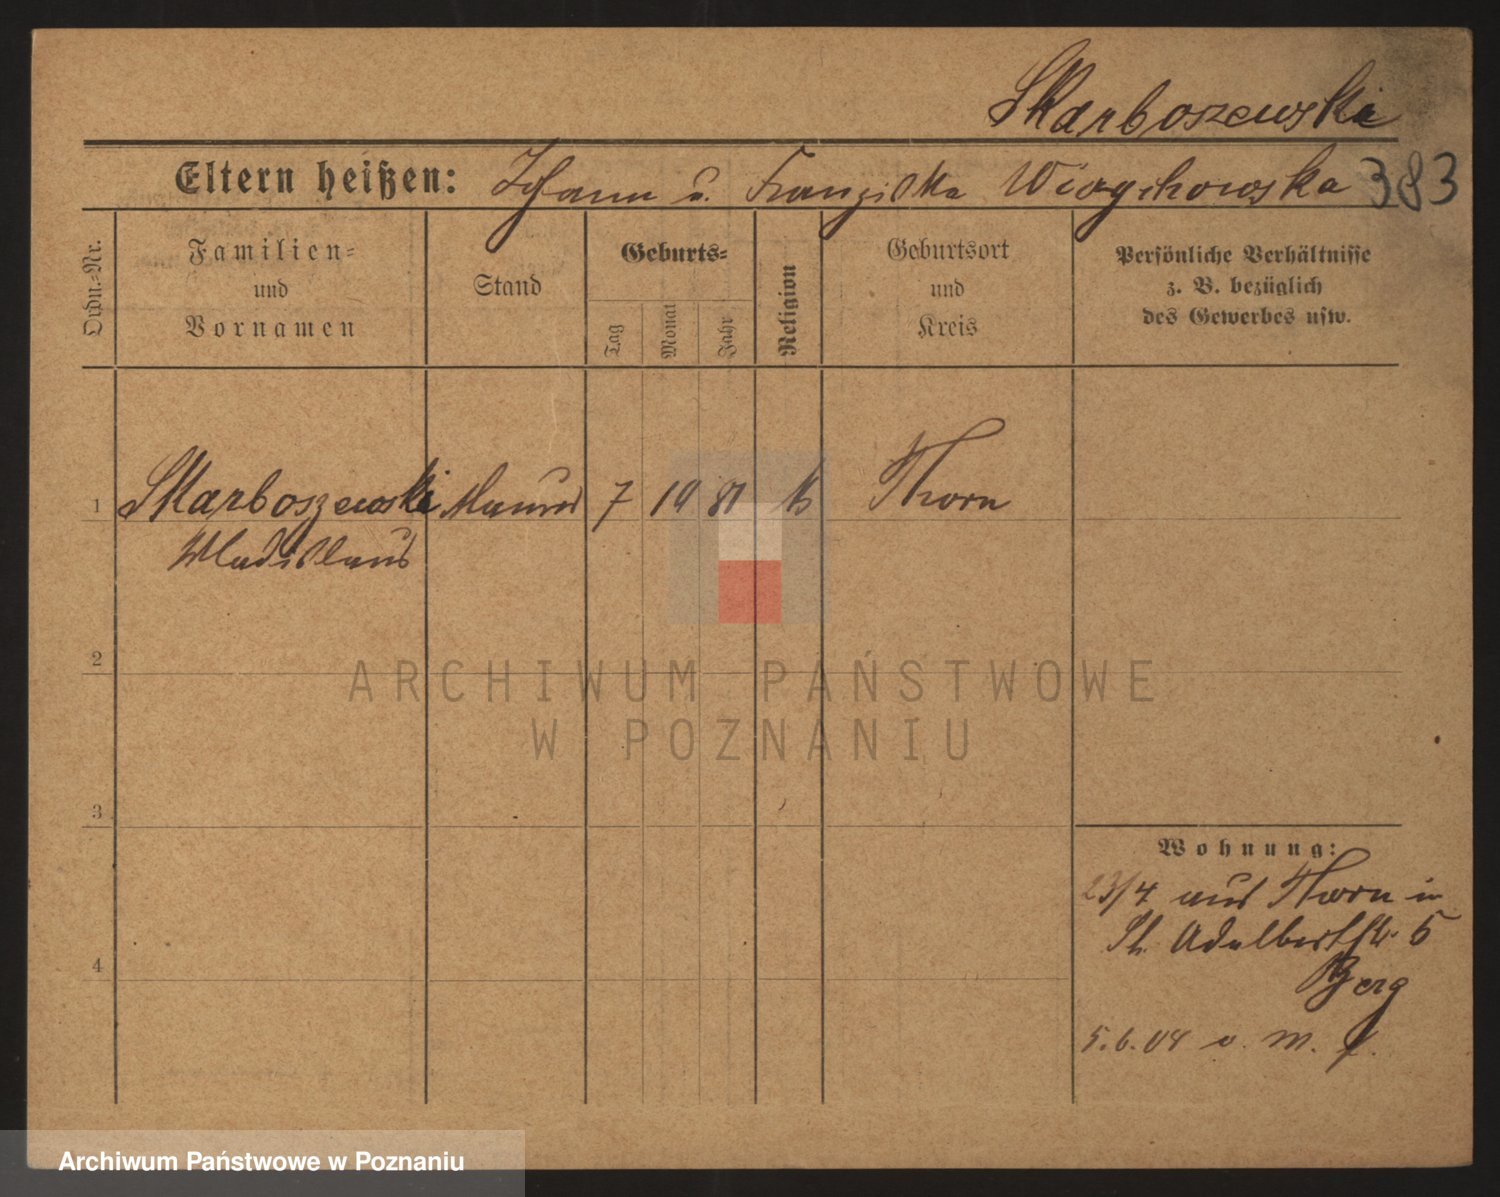 Skarboszewski
Eltern heißen: Johann u. Franziska 383
Ordn.-Nr.
Familien-
und
Vornamen
Stand
Geburts-
Tag
Monat
Jahr
Religion
Geburtsort
und
Kreis
Persönliche Verhältnisse
z. B. bezüglich
des Gewerbes usw.
1 Skarboszewski Maurer 7 10 81 k Thorn
Wladislaus
2
3
4
Wohnung:
23/4 aus Thorn in
St. Adalbertstr. 5
Berg
5.6.04 v. m.
ARCHIWUM PAŃSTWOWE
W POZNANIU
Archiwum Państwowe w Poznaniu